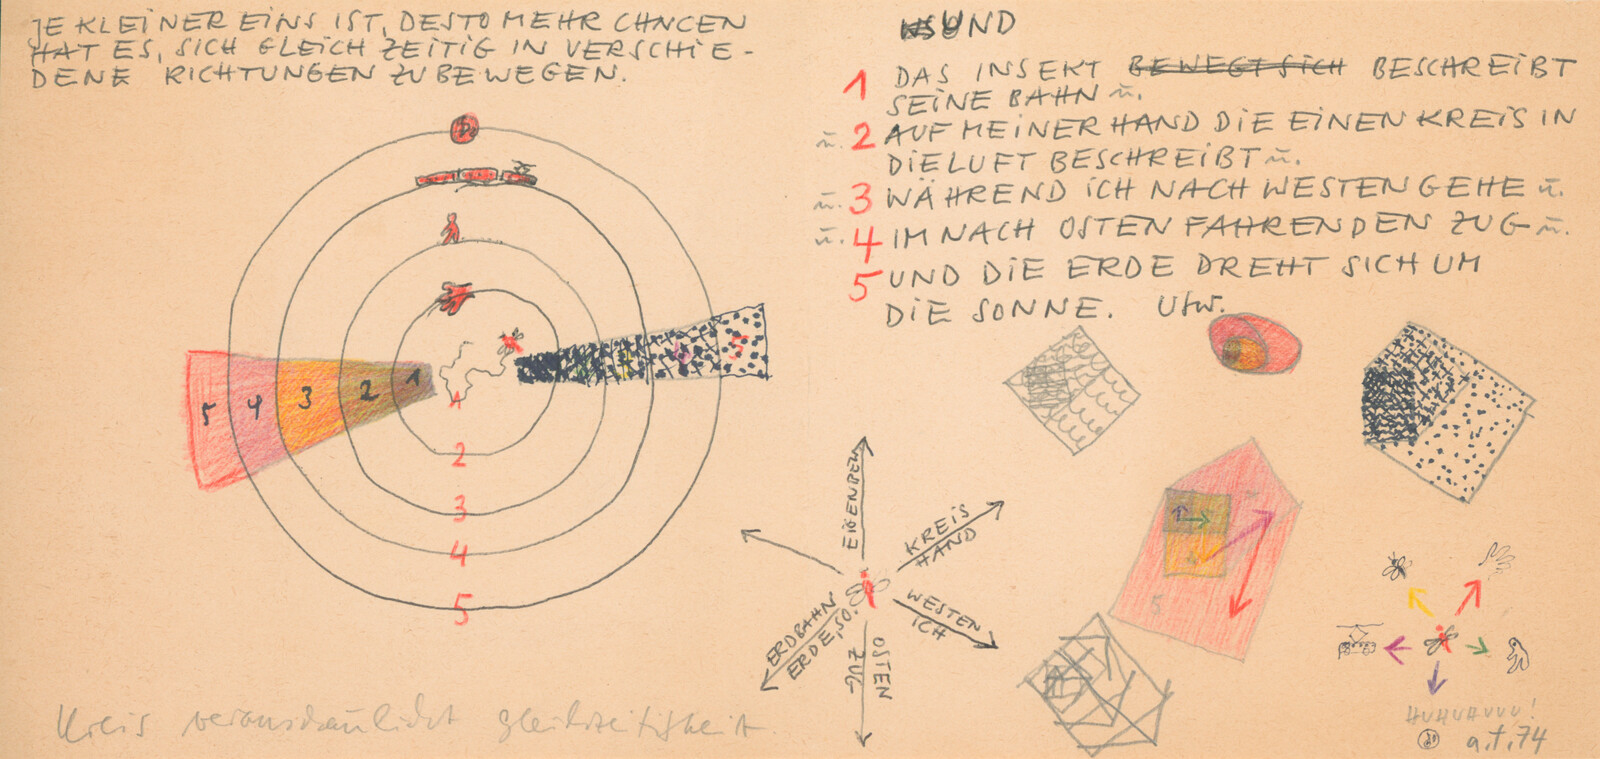 JE KLEINER EINS IST, DESTO MEHR CHNCEN
HAT ES, SICH GLEICH ZEITIG IN VERSCHIE-
DENE RICHTUNGEN ZU BEWEGEN.
UND
1 DAS INSEKT BEWEGT SICH BESCHREIBT
SEINE BAHN u.
u. 2 AUF MEINER HAND DIE EINEN KREIS IN
DIE LUFT BESCHREIBT u.
u. 3 WÄHREND ICH NACH WESTEN GEHE u.
u. 4 IM NACH OSTEN FAHRENDEN ZUG u.
5 UND DIE ERDE DREHT SICH UM
DIE SONNE. Usw.
5 4 3 2 1
1
2
3
4
5
EIGENBEW
KREIS
HAND
WESTEN
ICH
OSTEN
ZUG
ERDBAHN
ERDE, SO.
5
Kreis veranschaulicht gleichzeitigkeit.
HUHUHUUU!
a.t.74